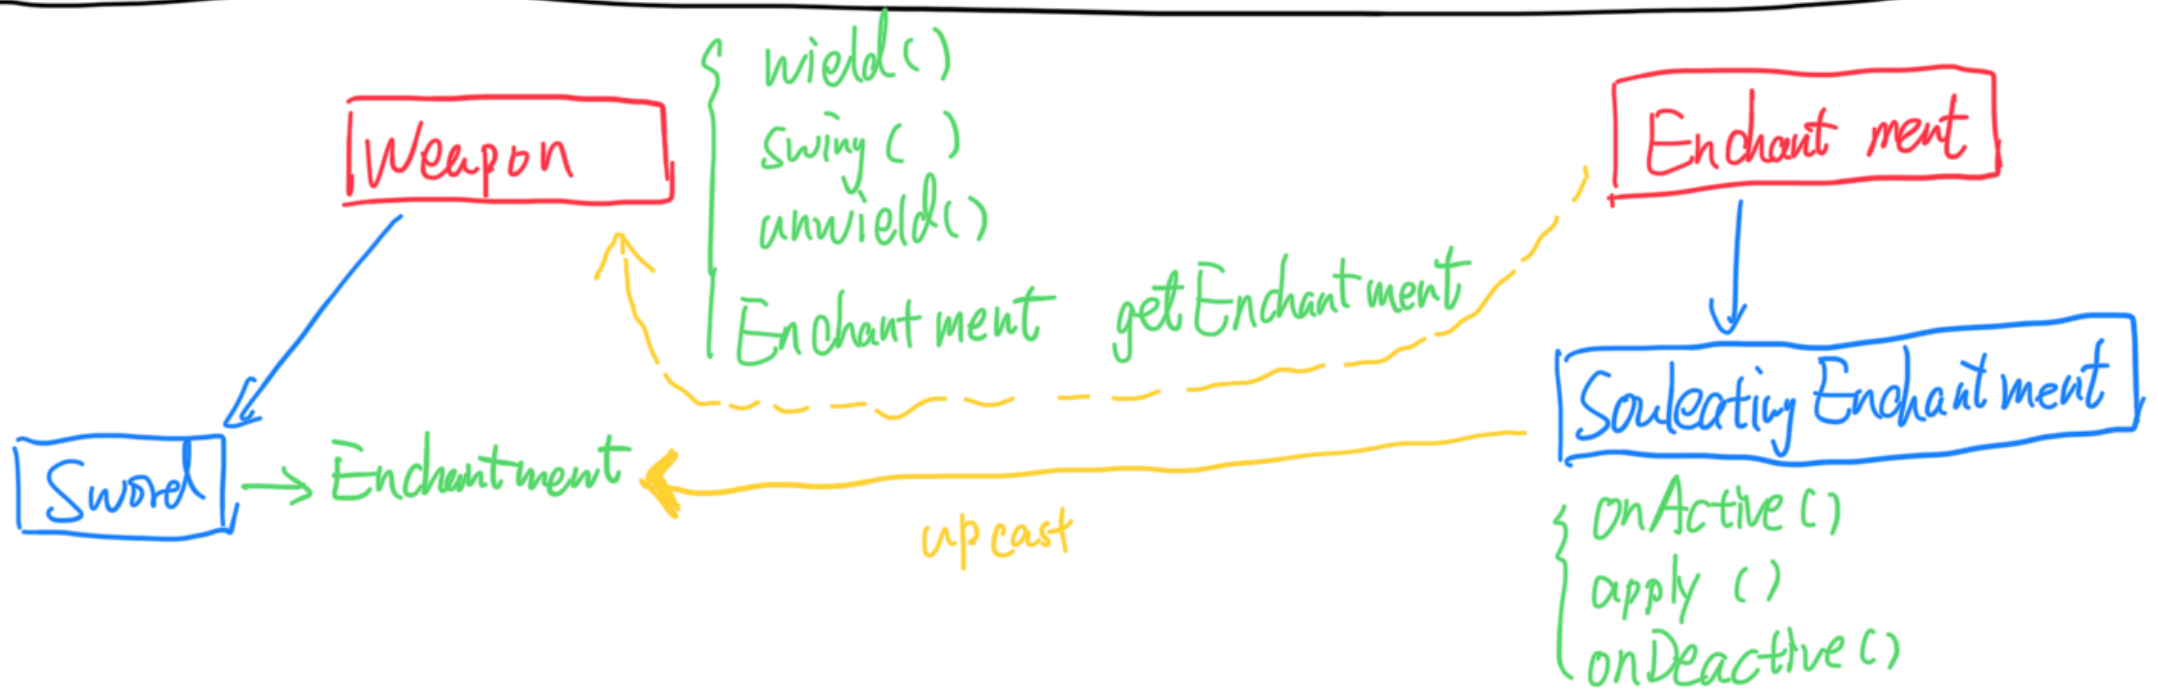 Weapon
wield()
swing()
unwield()
Enchantment getEnchantment
Enchantment
SouleatingEnchantment
Sword
Enchantment
upcast
onActive()
apply()
onDeactive()